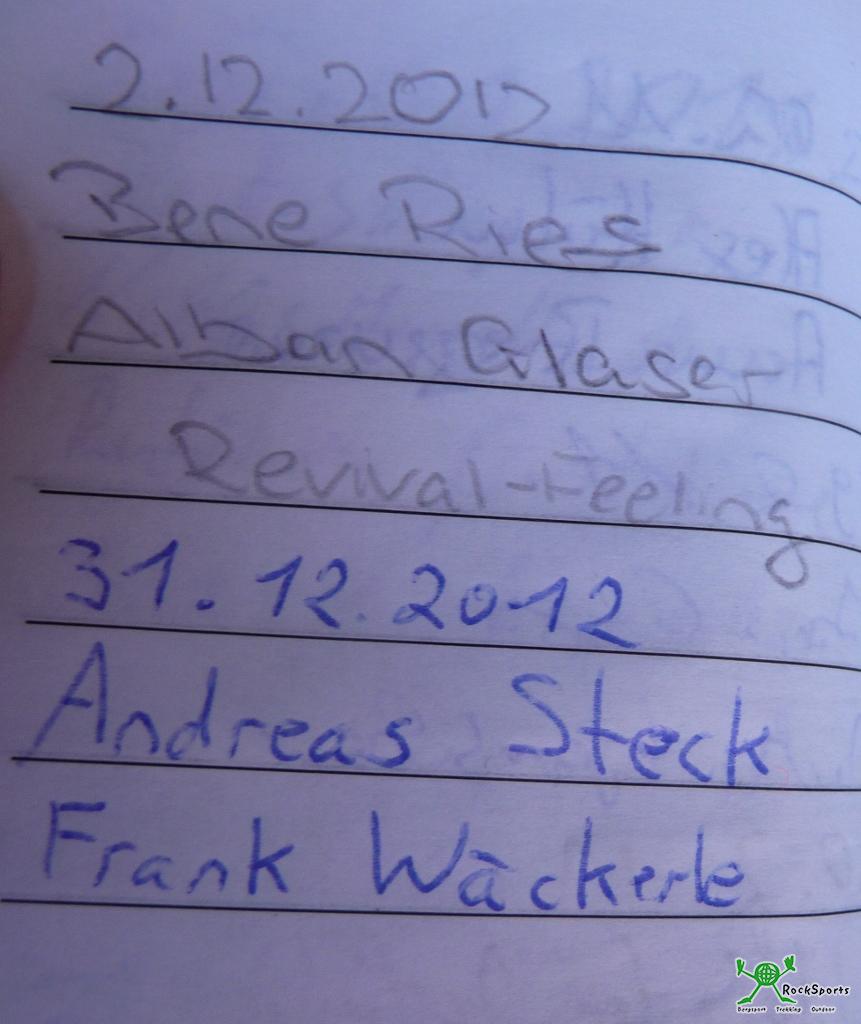 2.12.2012
Bene Ries
Alban Glaser
Revival-Feeling
31.12.2012
Andreas Steck
Frank Wäckerle
RockSports
Bergsport Trekking Outdoor